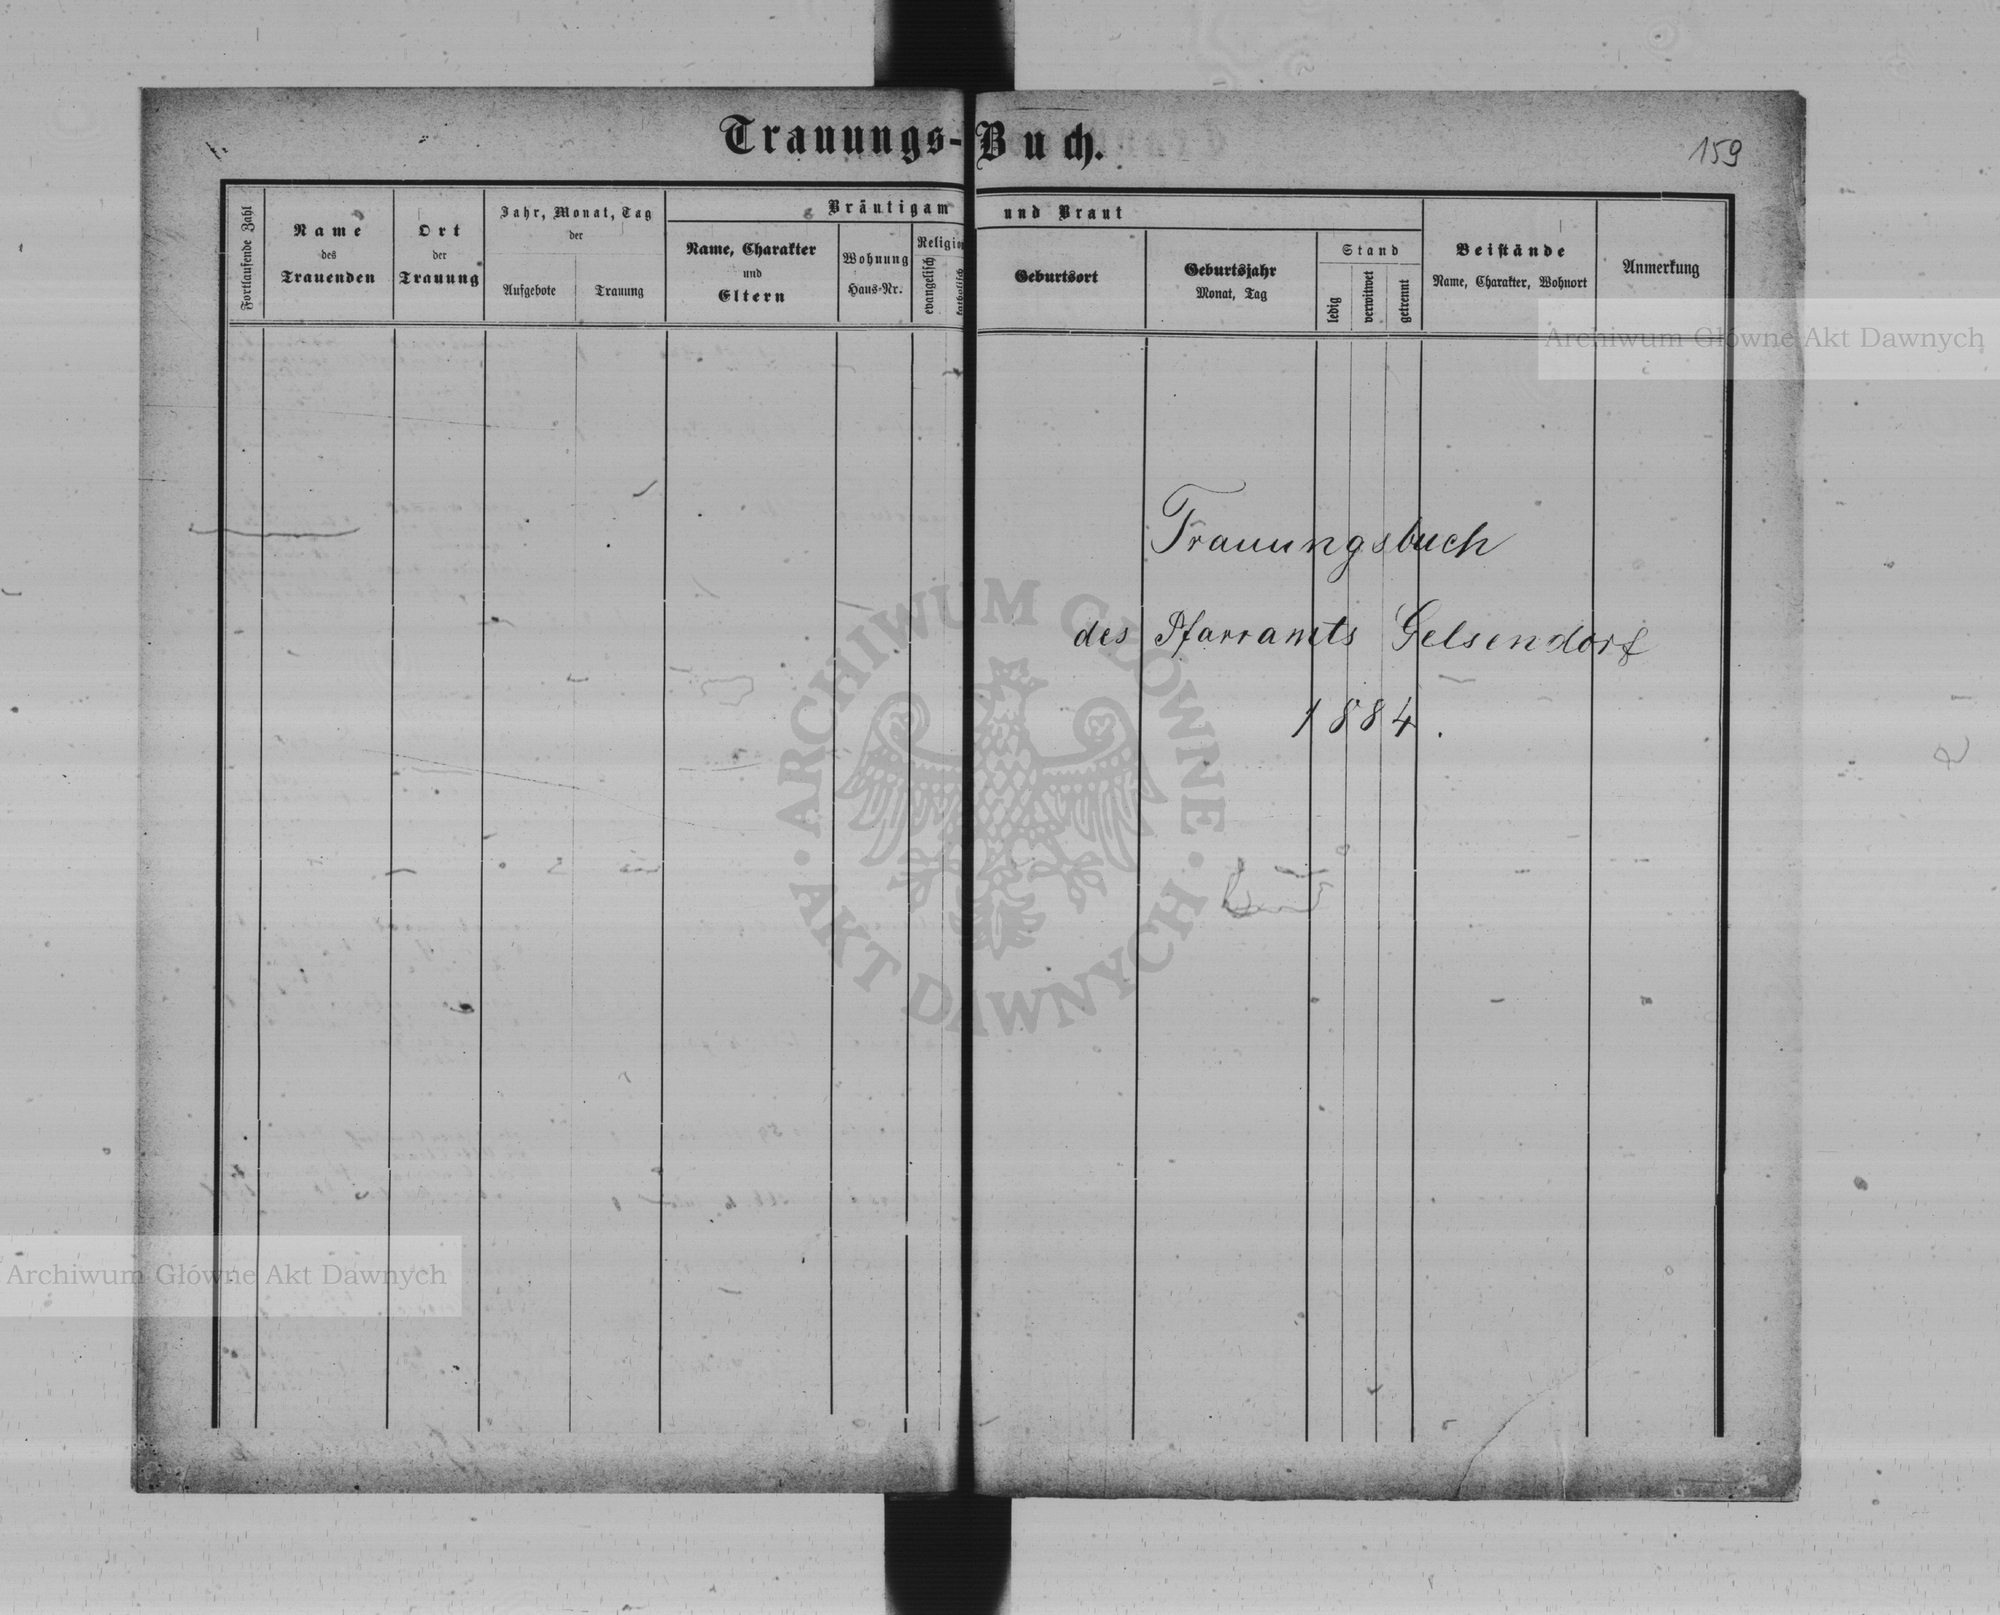 Trauungs-Buch.
159
Fortlaufende Zahl
Name
des
Trauenden
Ort
der
Trauung
Jahr, Monat, Tag
der
Aufgebote
Trauung
Bräutigam und Braut
Name, Charakter
und
Eltern
Wohnung
Haus-Nr.
Religion
evangelisch
katholisch
Geburtsort
Geburtsjahr
Monat, Tag
Stand
ledig
verwitwet
getrennt
Beistände
Name, Charakter, Wohnort
Anmerkung
Archiwum Główne Akt Dawnych
Trauungsbuch
des Pfarramts Gelsendorf
1884.
ARCHIWUM GŁÓWNE
AKT DAWNYCH
Archiwum Główne Akt Dawnych